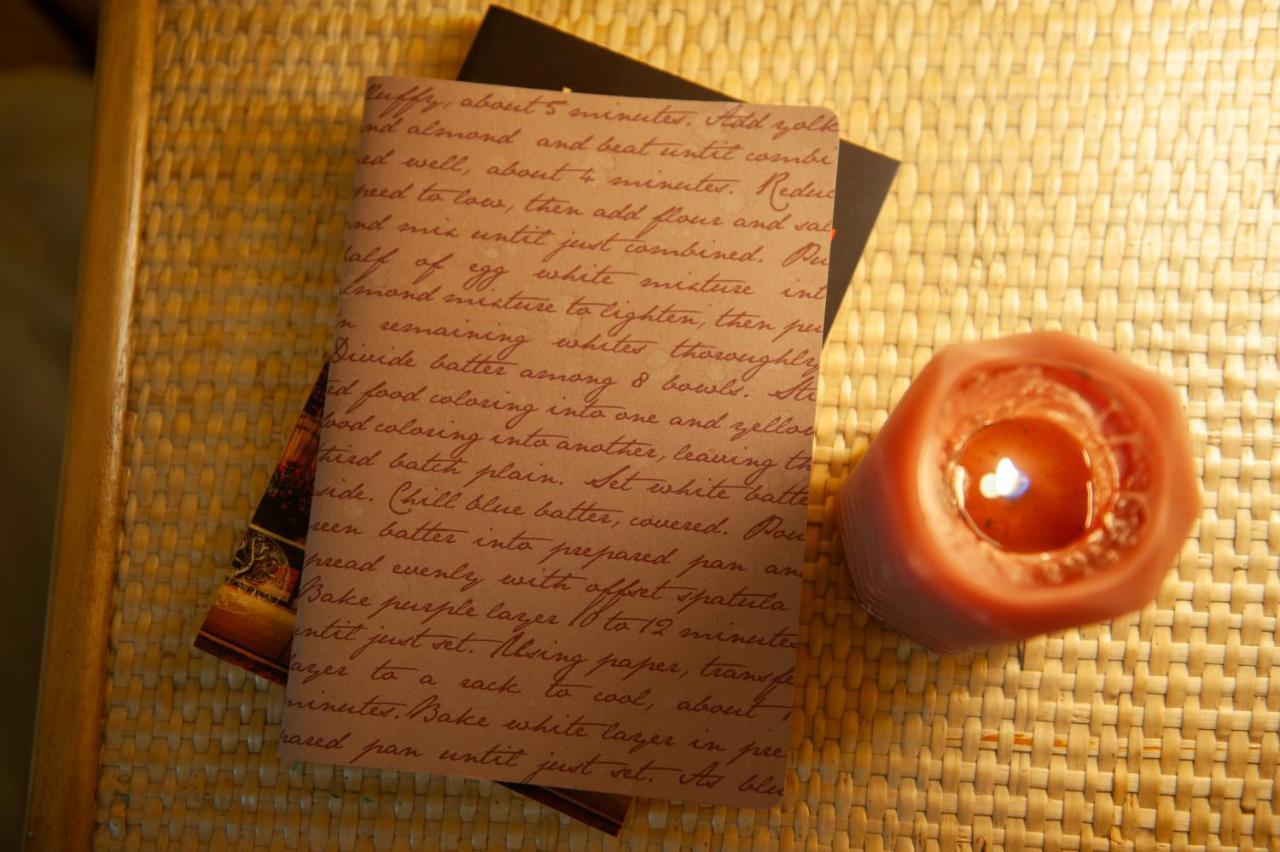 luffy, about 5 minutes. Add yolk
nd almond and beat until combi
ed well, about 4 minutes. Reduc
peed to low, then add flour and sal
nd mix until just combined. Pu
half of egg white mixture int
lmond mixture to lighten, then pu
in remaining whites thoroughly
Divide batter among 8 bowls. Sti
ed food coloring into one and yellow
food coloring into another, leaving th
third batch plain. Set white batte
side. Chill blue batter, covered. Pou
reen batter into prepared pan an
pread evenly with offset spatula
Bake purple layer 10 to 12 minutes
until just set. Using paper, transfe
layer to a rack to cool, about
minutes. Bake white layer in pre
pared pan until just set. As blu